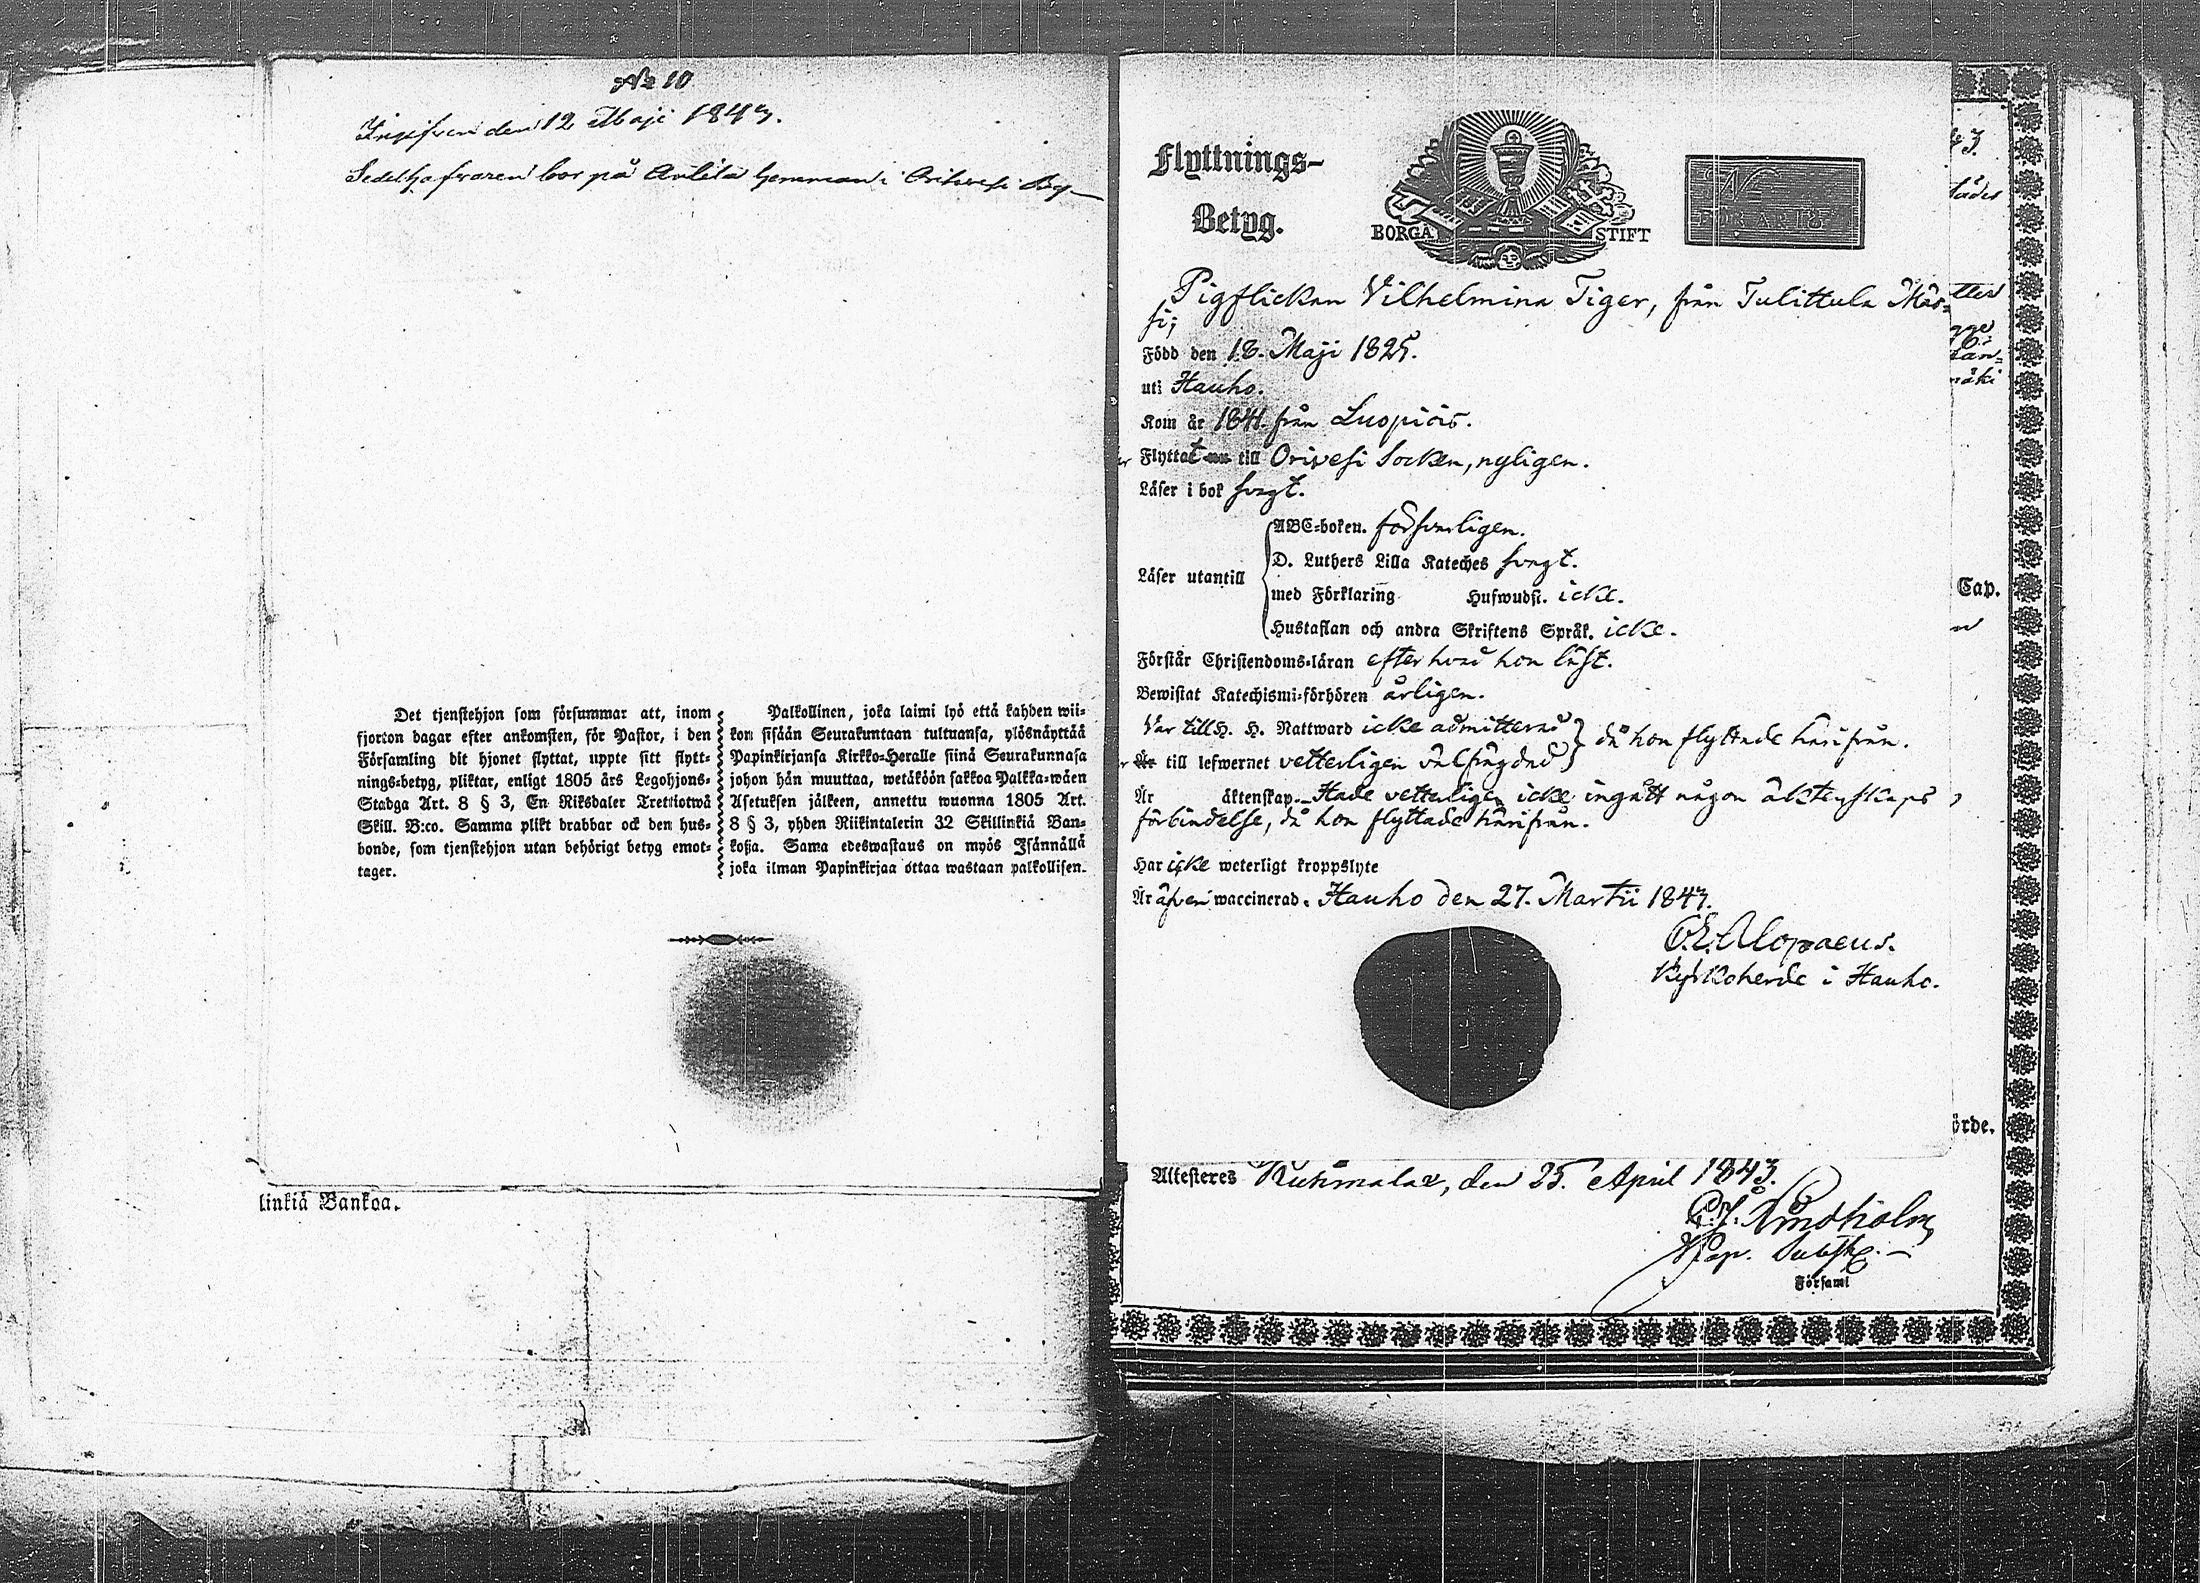 No 10
Ingifven den 12 Maji 1843.
Sedelhafvaren bor på Anttila hemman i Orihvesi By
Det tjenstehjon som försummar att, inom
fjorton dagar efter ankomsten, för Pastor, i den
Församling dit hjonet flyttat, uppte sitt flytt-
nings-betyg, pliktar, enligt 1805 års Legohjons-
Stadga Art. 8 § 3, En Riksdaler Trettiotwå
Skill. B:co. Samma plikt drabbar ock den hus-
bonde, som tjenstehjon utan behörigt betyg emot-
tager.
Palkollinen, joka laimi lyö että kahden wii-
kon sisään Seurakuntaan tultuansa, ylösnäyttää
Papinkirjansa Kirkko-Heralle siinä Seurakunnasa
johon hän muuttaa, wetäköön sakkoa Palkka-wäen
Asetuksen jälkeen, annettu wuonna 1805 Art.
8 § 3, yhden Riikintalerin 32 Skillinkiä Ban-
kosa. Sama edeswastaus on myös Isännällä
joka ilman Papinkirjaa ottaa wastaan palkollisen.
linkiä Bankoa.
Flyttnings-
Betyg.
BORGÅ STIFT
FÖR ÅR 18
Pigflickan Vilhelmina Tiger, från Tulittula Mäs-
si;
Född den 18. Maji 1825.
uti Hauho.
Kom år 1841. från Luopiois.
Flyttat till Orivesi Socken, nyligen.
Läser i bok svagt.
Läser utantill
ABC-boken. försvarligen.
D. Luthers Lilla Kateches svagt.
med Förklaring Hufwudst. icke.
Hustaflan och andra Skriftens Språk. icke.
Förstår Christendoms-läran efter hvad hon läst.
Bewistat Katechismi-förhören årligen.
Var till H. H. Nattward icke admitterad
Är till lefwernet vetterligen välfrägdad
då hon flyttade härifrån.
Är äktenskap. Hade vetterligen icke ingått någon äktenskaps
förbindelse, då hon flyttade härifrån.
Har icke weterligt kroppslyte
Är äfven waccinerad. Hauho den 27. Martii 1843.
Alopaeus.
Kyrkoherde i Hauho.
Cap.
örde.
Attesteres Kuhmalax, den 25. April 1843.
Lindholm
Församl